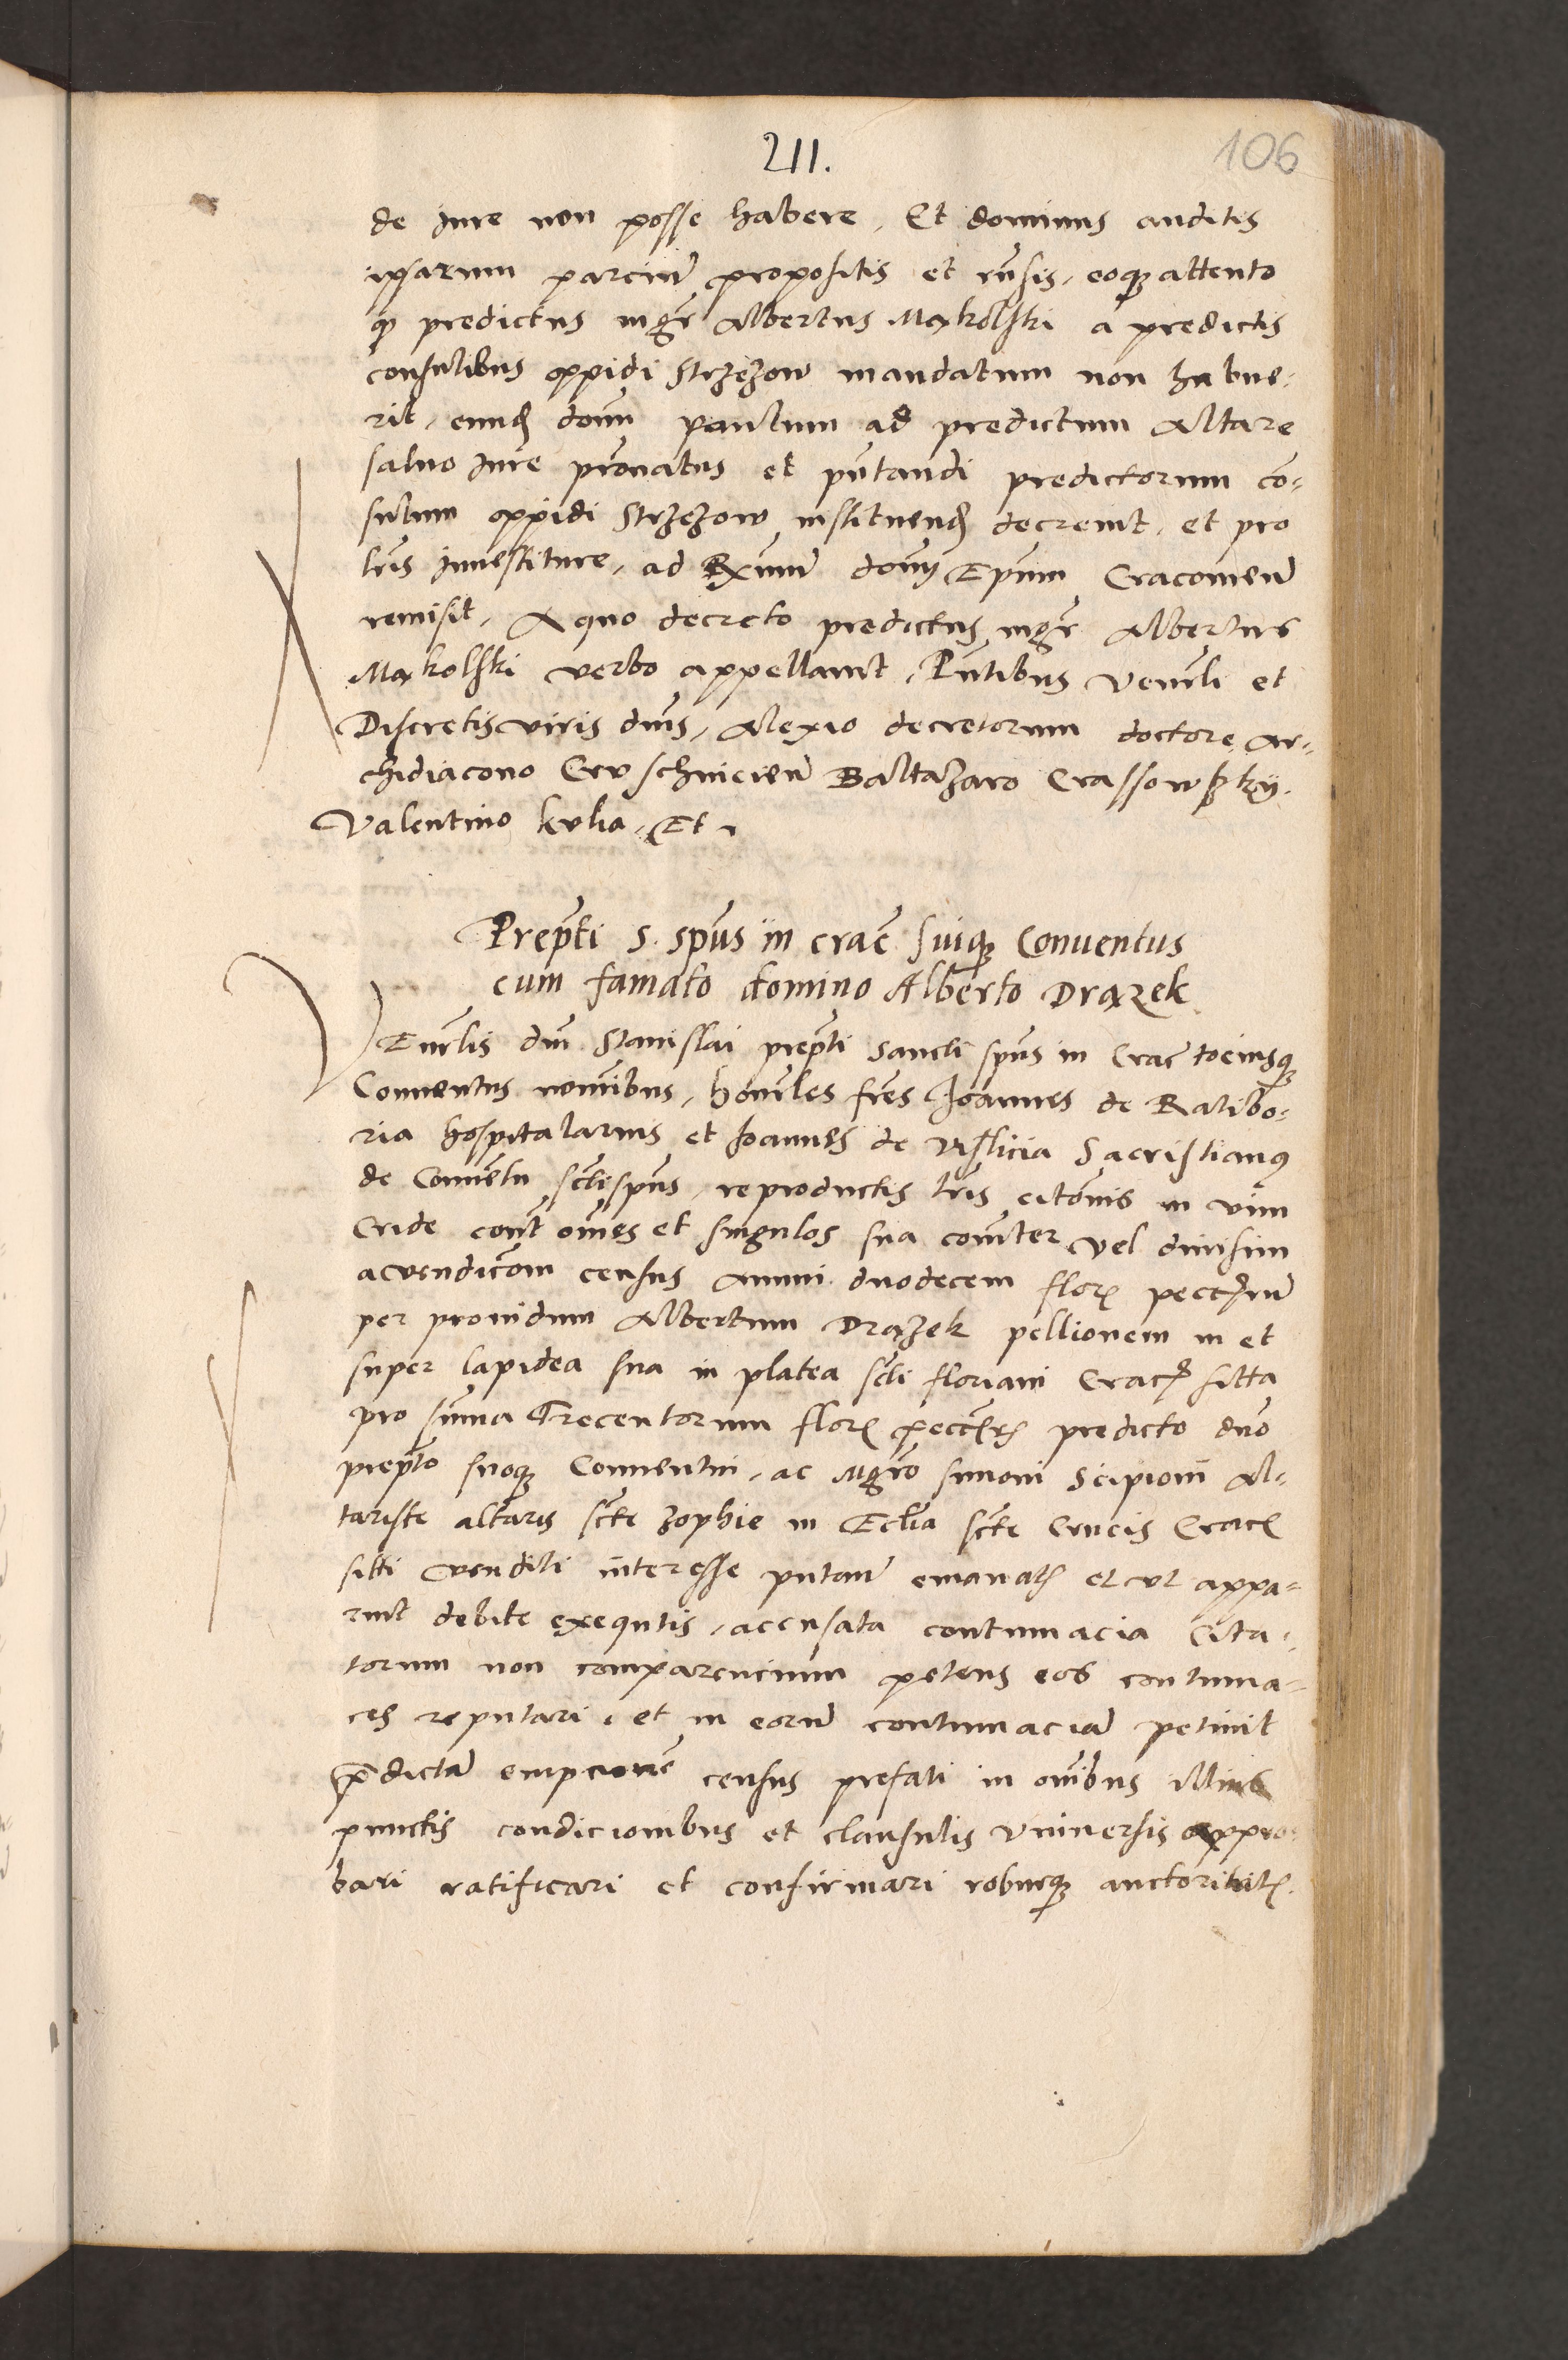 211.
106
de iure non posse habere. Et dominus auditis
ipsarum parciū propositis et rūsis, eoqꝫ attento
qꝫ predictus mgr̄ Albertus Mąkolski a predictis
consulibus oppidi Strzezow mandatum non habue-
rit, eundꝫ dom̄ paulum ad predictum Altare
saluo iure pronatus et pn̄tandi predictorum cō-
sulum oppidi Strzezow instituendꝫ decreuit, et pro
lr̄is inuestiture, ad Rx̄mum dom̄ Ep̄um Cracouien̄
remisit, A quo decreto predictus mgr̄ Albertus
Mąkolski verbo appellauit, Pn̄tibus Venrli et
Discretis viris dn̄is, Alexio decretorum doctore Ar-
chidiacono Cruschwicien̄ Baltazaro Crassowsky.
Valentino kulia. Et
Prepti S. sp̄us in crac̄ suiqꝫ Conuentus
cum famato domino Alberto Drązek
VEnrlis dn̄i Stanislai prep̄ti sancti sp̄us in Crac̄ tociusqꝫ
Conuentus nomībus, honrles fr̄es Joannes de Ratibo-
ria hospitalarius et Joannes de Vislicia Sacristianꝰ
de Conuētu sct̄i sp̄us, reproductis lr̄is citōnis in vim
Cride cont̄ om̄es et singulos sua com̄ter vel diuisim
a vendicōm census annui duodecem flor̄ pecc̄ꝫ in
per prouidum Albertum Drązek pellionem in et
super lapidea sua in platea scti floriani Cracꝫ sitta
pro sūma Trecentorum flor̄ pecc̄ꝫ predicto dn̄o
prep̄to suoqꝫ Conuentui, ac Mgrō simoni Scipioni Al-
tariste altaris scte zophie in Ecl̄ia scte Crucis Crac̄
sitti venditi interesse putan̄ emanatꝫ et vt appa-
ruit debite exequtis, accusata contumacia Cita-
torum non comparencium petens eos contuma-
ces reputari, et in eorū contumaciā petiuit
p̄dictā empcionē census prefati in om̄ibus illius
punctis condicionibus et clausulis vniuersis appro-
bari ratificari et confirmari roburqꝫ auctoritatꝫ